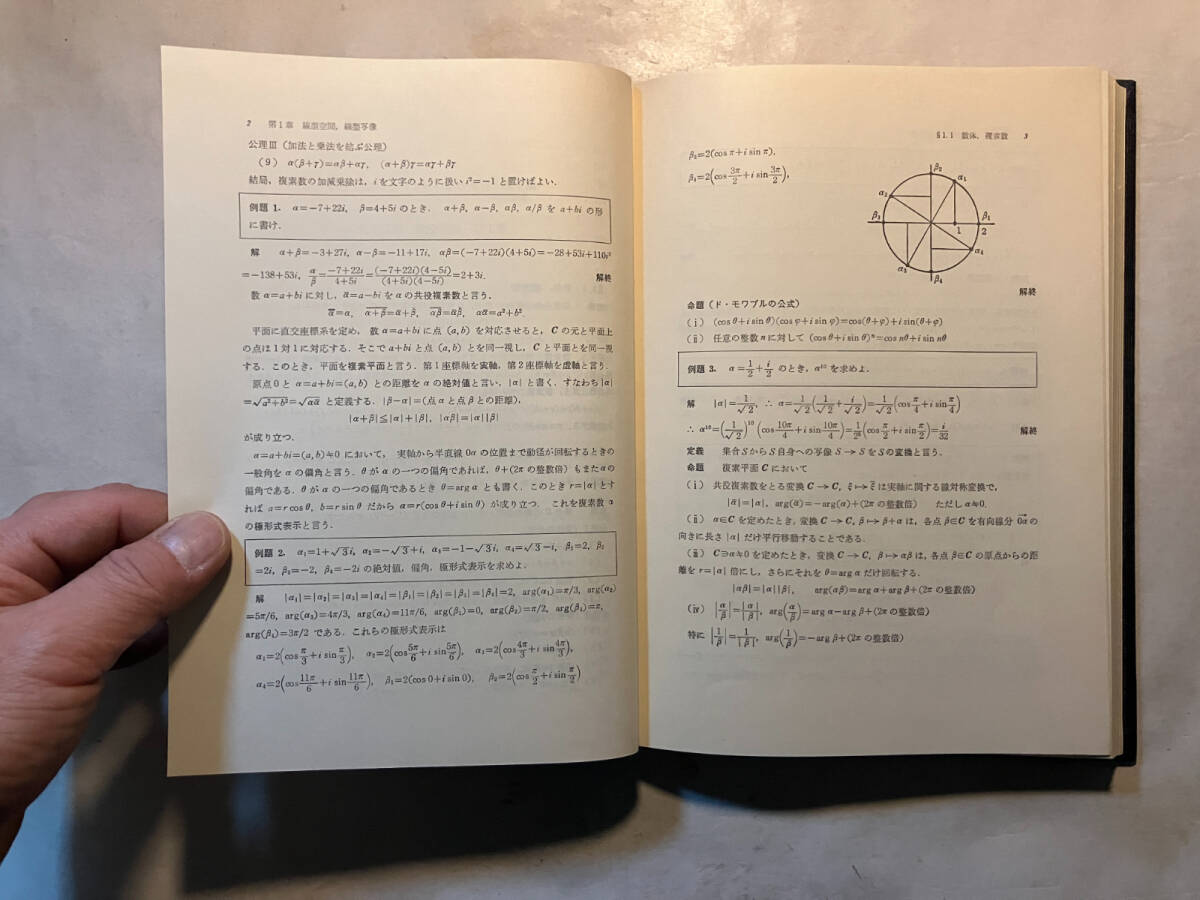 2 第1章 線型空間,線型写像
公理Ⅲ(加法と乗法を結ぶ公理)
(9) α(β+γ)=αβ+αγ, (α+β)γ=αγ+βγ
結局,複素数の加減乗除は,iを文字のように扱いi²=−1と置けばよい.
例題1. α=−7+22i, β=4+5i のとき. α+β, α−β, αβ, α/β を a+bi の形
に書け.
解 α+β=−3+27i, α−β=−11+17i, αβ=(−7+22i)(4+5i)=−28+53i+110i²
=−138+53i, α/β=(−7+22i)/(4+5i)=(−7+22i)(4−5i)/(4+5i)(4−5i)=2+3i. 解終
数 α=a+bi に対し,ᾱ=a−bi を α の共役複素数と言う.
α̿=α, \overline{α+β}=ᾱ+β̄, \overline{αβ}=ᾱβ̄, αᾱ=a²+b².
平面に直交座標系を定め, 数 α=a+bi に点 (a, b) を対応させると, C の元と平面上
の点は1対1に対応する.そこで a+bi と点 (a, b) とを同一視し, C と平面とを同一視
する.このとき,平面を複素平面と言う.第1座標軸を実軸,第2座標軸を虚軸と言う.
原点0と α=a+bi=(a, b) との距離を α の絶対値と言い,|α| と書く.すなわち |α|
=√(a²+b²)=√(αᾱ) と定義する.|β−α|=(点 α と点 β との距離),
|α+β|≦|α|+|β|, |αβ|=|α||β|
が成り立つ.
α=a+bi=(a, b)≠0 において, 実軸から半直線 0α の位置まで動径が回転するときの
一般角を α の偏角と言う.θ が α の一つの偏角であれば,θ+(2π の整数倍) もまた α の
偏角である.θ が α の一つの偏角であるとき θ=arg α とも書く.このとき r=|α| とす
れば a=r cos θ, b=r sin θ だから α=r(cos θ+i sin θ) が成り立つ. これを複素数 α
の極形式表示と言う.
例題2. α₁=1+√3 i, α₂=−√3+i, α₃=−1−√3 i, α₄=√3−i, β₁=2, β₂
=2i, β₃=−2, β₄=−2i の絶対値,偏角,極形式表示を求めよ.
解 |α₁|=|α₂|=|α₃|=|α₄|=|β₁|=|β₂|=|β₃|=|β₄|=2, arg(α₁)=π/3, arg(α₂)
=5π/6, arg(α₃)=4π/3, arg(α₄)=11π/6, arg(β₁)=0, arg(β₂)=π/2, arg(β₃)=π,
arg(β₄)=3π/2 である.これらの極形式表示は
α₁=2(cos π/3+i sin π/3), α₂=2(cos 5π/6+i sin 5π/6), α₃=2(cos 4π/3+i sin 4π/3),
α₄=2(cos 11π/6+i sin 11π/6), β₁=2(cos 0+i sin 0), β₂=2(cos π/2+i sin π/2)
§1.1 数体,複素数 3
β₃=2(cos π+i sin π),
β₄=2(cos 3π/2+i sin 3π/2),
β₂
α₁
α₂
β₃
β₁
1
2
α₃
α₄
β₄
解終
命題(ド・モワブルの公式)
(i) (cos θ+i sin θ)(cos φ+i sin φ)=cos(θ+φ)+i sin(θ+φ)
(ii) 任意の整数 n に対して (cos θ+i sin θ)ⁿ=cos nθ+i sin nθ
例題3. α=1/2+i/2 のとき,α¹⁰ を求めよ.
解 |α|=1/√2, ∴ α=1/√2(1/√2+i/√2)=1/√2(cos π/4+i sin π/4)
∴ α¹⁰=(1/√2)¹⁰(cos 10π/4+i sin 10π/4)=1/2⁵(cos π/2+i sin π/2)=i/32 解終
定義 集合 S から S 自身への写像 S→S を S の変換と言う.
命題 複素平面 C において
(i) 共役複素数をとる変換 C→C, ξ↦ξ̄ は実軸に関する線対称変換で,
|ᾱ|=|α|, arg(ᾱ)=−arg(α)+(2π の整数倍) ただし α≠0.
(ii) α∈C を定めたとき,変換 C→C, β↦β+α は,各点 β∈C を有向線分 0α の
向きに長さ |α| だけ平行移動することである.
(iii) C∋α≠0 を定めたとき,変換 C→C, β↦αβ は,各点 β∈C の原点からの距
離を r=|α| 倍にし,さらにそれを θ=arg α だけ回転する.
|αβ|=|α||β|, arg(αβ)=arg α+arg β+(2π の整数倍)
(iv) |α/β|=|α|/|β|, arg(α/β)=arg α−arg β+(2π の整数倍)
特に |1/β|=1/|β|, arg(1/β)=−arg β+(2π の整数倍)